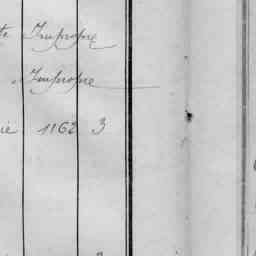 te Impropre
Impropre
ie 1162 3